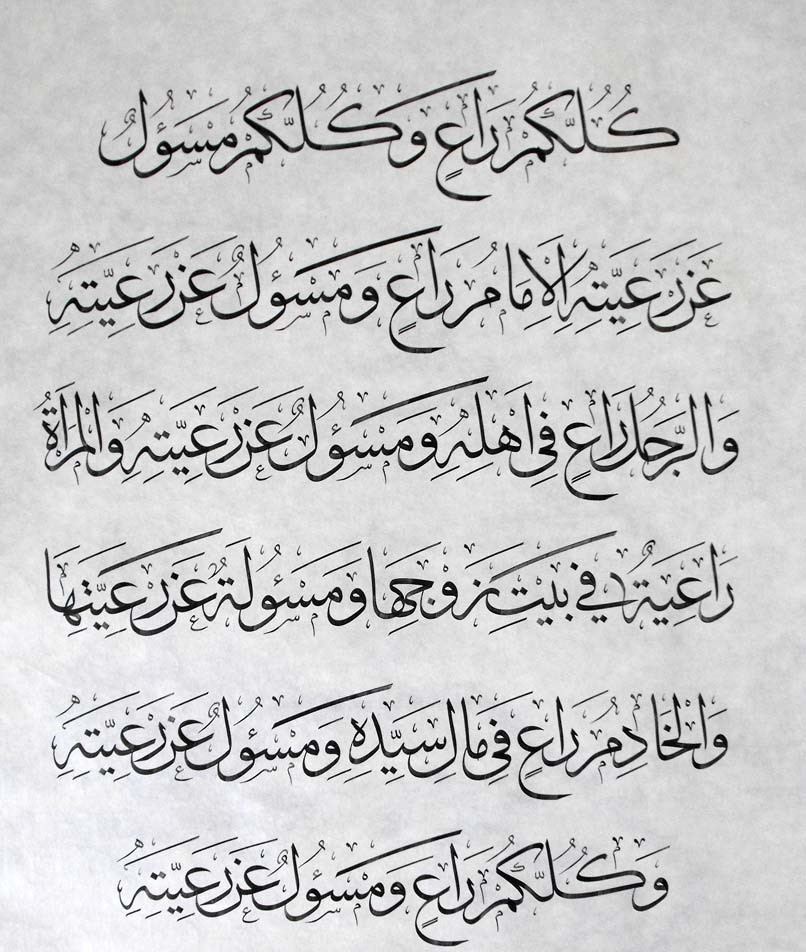 كُلُّكُمْ رَاعٍ وَكُلُّكُمْ مَسَؤُلٌ
عَنْ رَعِيَّتِهِ اَلْاِمَامُ رَاعٍ وَمَسْؤُلٌ عَنْ رَعِيَّتِهِ
وَالرَّجُلُ رَاعٍ فِى اَهْلِهِ وَمَسْؤُلٌ عَنْ رَعِيَّتِهِ وَالْمَرْاَةُ
رَاعِيَةٌ فِي بَيْتِ زَوْجِهَا وَمَسْؤُلَةٌ عَنْ رَعِيَّتِهَا
وَالْخَادِمُ رَاعٍ فِى مَالِ سَيِّدِهِ وَمَسْؤُلٌ عَنْ رَعِيَّتِهِ
وَكُلُّكُمْ رَاعٍ وَمَسْؤُلٌ عَنْ رَعِيَّتِهِ